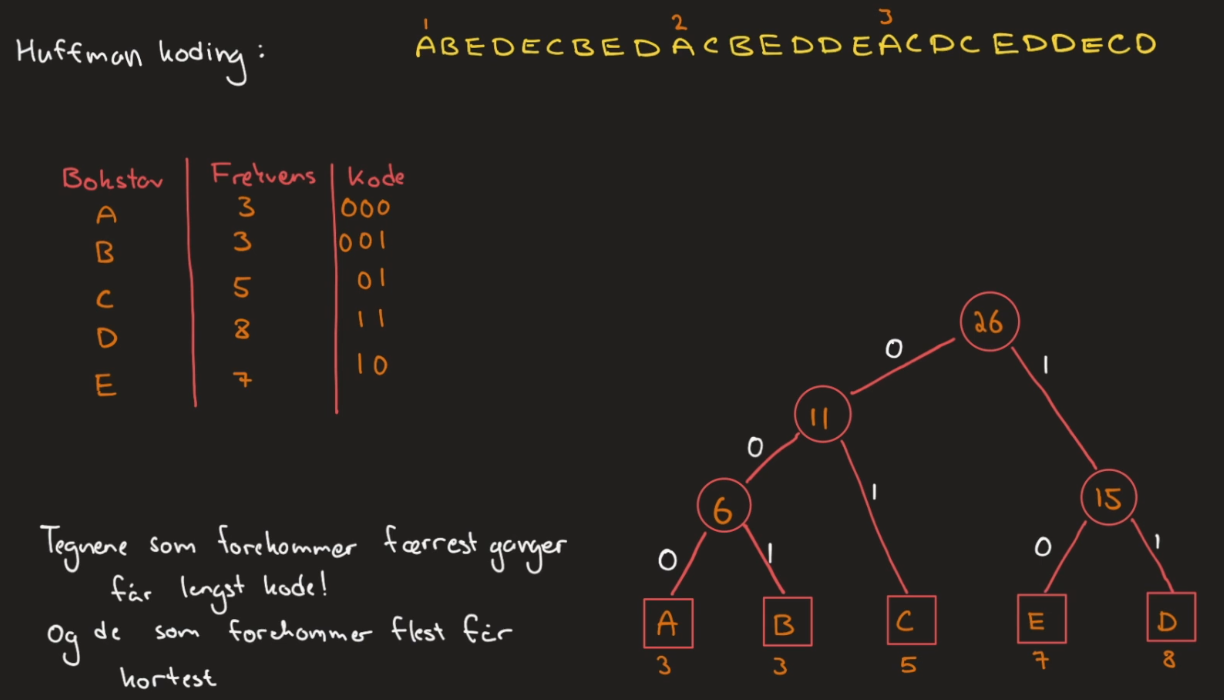 1 2 3
Huffman koding : ABEDECBEDACBEDDEACDCEDDECD
Bokstav Frekvens Kode
A 3 000
B 3 001
C 5 01
D 8 11
E 7 10
26
0 1
11
0 1
6 15
0 1 0 1
A B C E D
3 3 5 7 8
Tegnene som forekommer færrest ganger
får lengst kode!
Og de som forekommer flest får
kortest